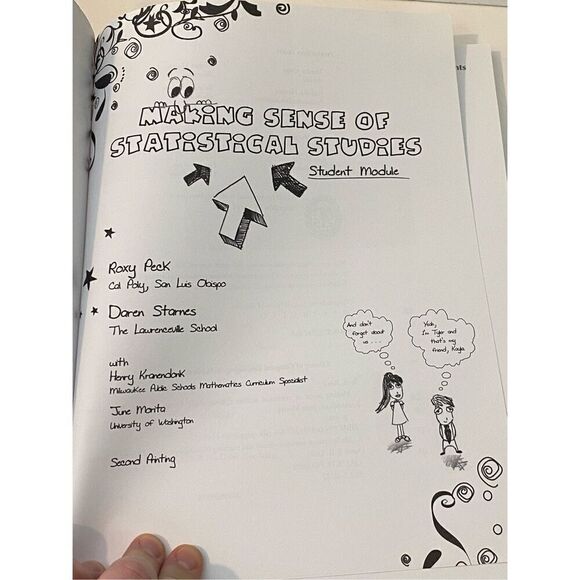 MAKING SENSE OF
STATISTICAL STUDIES
Student Module
Roxy Peck
Cal Poly, San Luis Obispo
Daren Starnes
The Lawrenceville School
with
Henry Kranendonk
Milwaukee Public Schools Mathematics Curriculum Specialist
June Morita
University of Washington
Second Printing
And don't
forget about
us . . .
Yeah,
I'm Tyler and
that's my
friend, Kayla